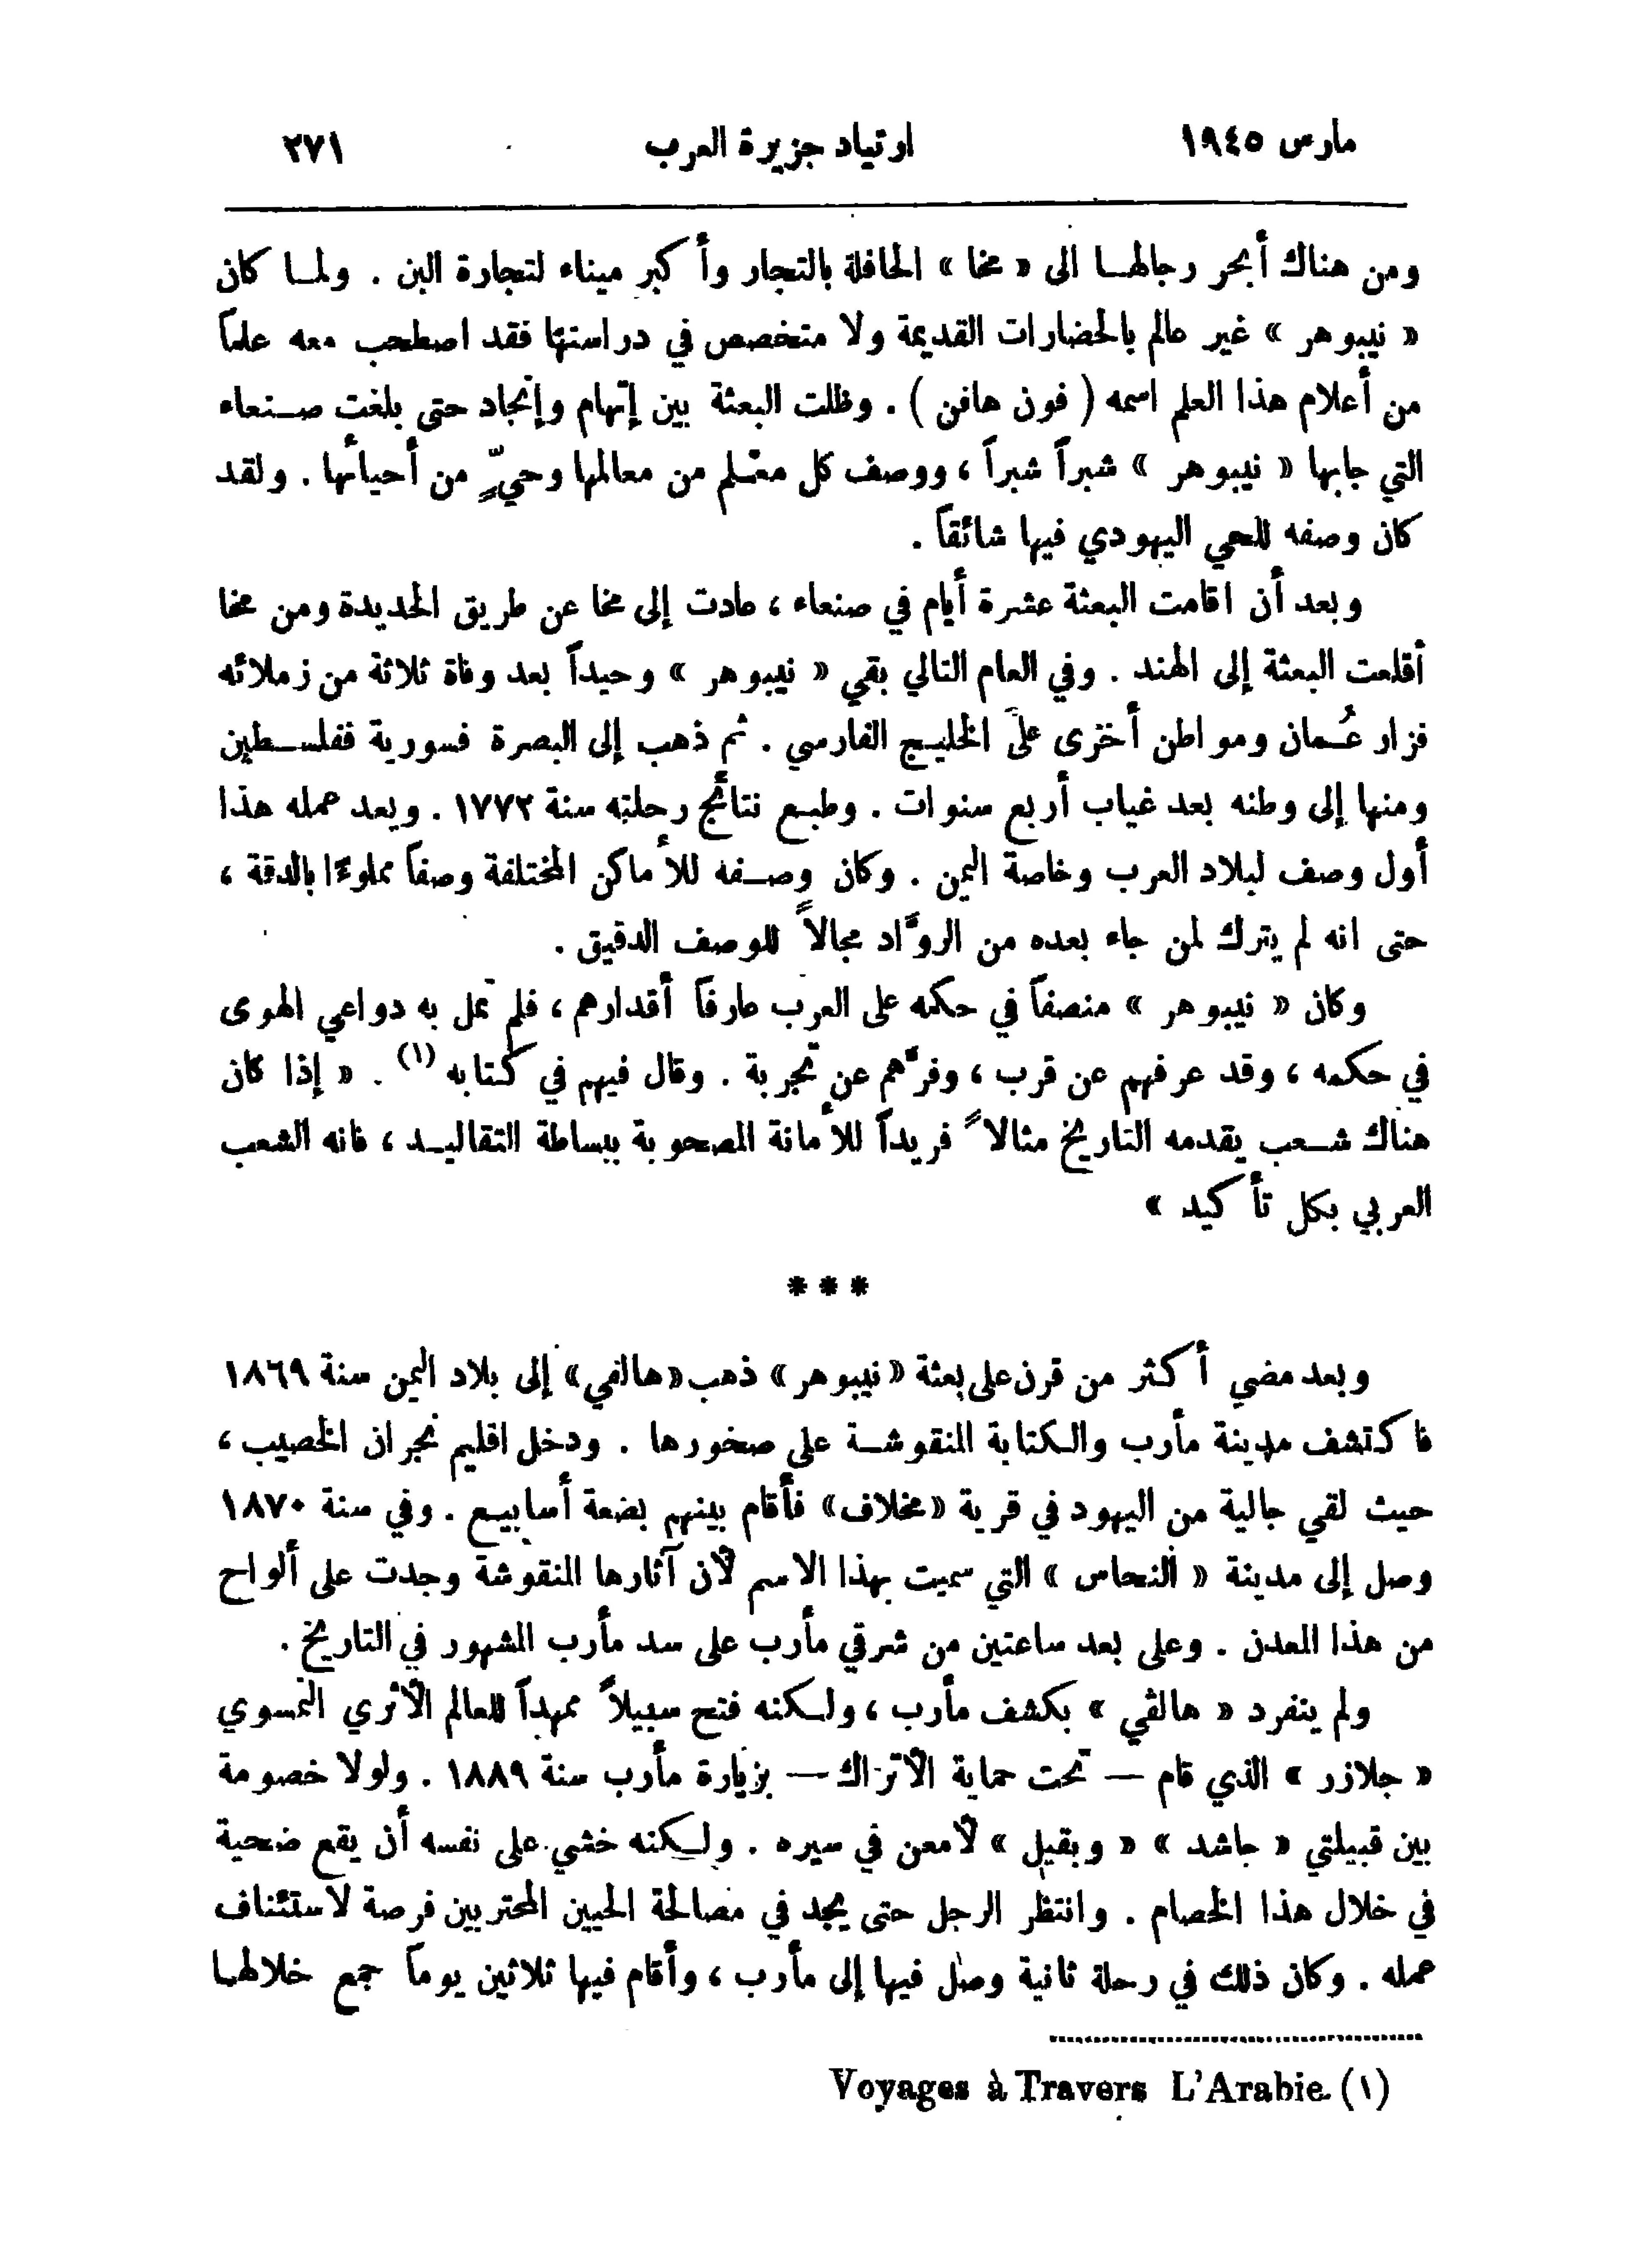 مارس ١٩٤٥ ارتياد جزيرة العرب ٢٧١
ومن هناك أبحر رجالها الى « مخا » الحافلة بالتجار وأكبر ميناء لتجارة البن . ولما كان
« نيبوهر » غير عالم بالحضارات القديمة ولا متخصص في دراستها فقد اصطحب معه علماً
من أعلام هذا العلم اسمه ( فون هافن ) . وظلت البعثة بين إتهام وإنجاد حتى بلغت صنعاء
التي جابها « نيبوهر » شبراً شبراً ، ووصف كل معْلم من معالمها وحيٍّ من أحيائها . ولقد
كان وصفه للحي اليهودي فيها شائقاً .
وبعد أن اقامت البعثة عشرة أيام في صنعاء ، عادت إلى مخا عن طريق الحديدة ومن مخا
أقلعت البعثة إلى الهند . وفي العام التالي بقي « نيبوهر » وحيداً بعد وفاة ثلاثة من زملائه
فزار عُمان ومواطن أخرى على الخليج الفارسي . ثم ذهب إلى البصرة فسورية ففلسطين
ومنها إلى وطنه بعد غياب أربع سنوات . وطبع نتائج رحلته سنة ١٧٧٢ . ويعد عمله هذا
أول وصف لبلاد العرب وخاصة اليمن . وكان وصفه للأماكن المختلفة وصفاً مملوءًا بالدقة ،
حتى انه لم يترك لمن جاء بعده من الروَّاد مجالاً للوصف الدقيق .
وكان « نيبوهر » منصفاً في حكمه على العرب عارفاً أقدارهم ، فلم تمل به دواعي الهوى
في حكمه ، وقد عرفهم عن قرب ، وفرَّهم عن تجربة . وقال فيهم في كتابه (١) . « إذا كان
هناك شعب يقدمه التاريخ مثالاً فريداً للأمانة المصحوبة ببساطة التقاليد ، فانه الشعب
العربي بكل تأكيد »
* * *
وبعد مضي أكثر من قرن على بعثة « نيبوهر » ذهب « هالفي » إلى بلاد اليمن سنة ١٨٦٩
فاكتشف مدينة مأرب والكتابة المنقوشة على صخورها . ودخل اقليم نجران الخصيب ،
حيث لقي جالية من اليهود في قرية « مخلاف » فأقام بينهم بضعة أسابيع . وفي سنة ١٨٧٠
وصل إلى مدينة « النحاس » التي سميت بهذا الاسم لأن آثارها المنقوشة وجدت على ألواح
من هذا المعدن . وعلى بعد ساعتين من شرقي مأرب على سد مأرب المشهور في التاريخ .
ولم ينفرد « هالفي » بكشف مأرب ، ولكنه فتح سبيلاً ممهداً للعالم الأثري النمسوي
« جلازر » الذي قام — تحت حماية الأتراك — بزيارة مأرب سنة ١٨٨٩ . ولولا خصومة
بين قبيلتي « جاشد » « وبقيل » لأمعن في سيره . ولكنه خشي على نفسه أن يقع ضحية
في خلال هذا الخصام . وانتظر الرجل حتى يجد في مصالحة الحيين المحتربين فرصة لاستئناف
عمله . وكان ذلك في رحلة ثانية وصل فيها إلى مأرب ، وأقام فيها ثلاثين يوماً جمع خلالها
(١) Voyages à Travers L'Arabie.